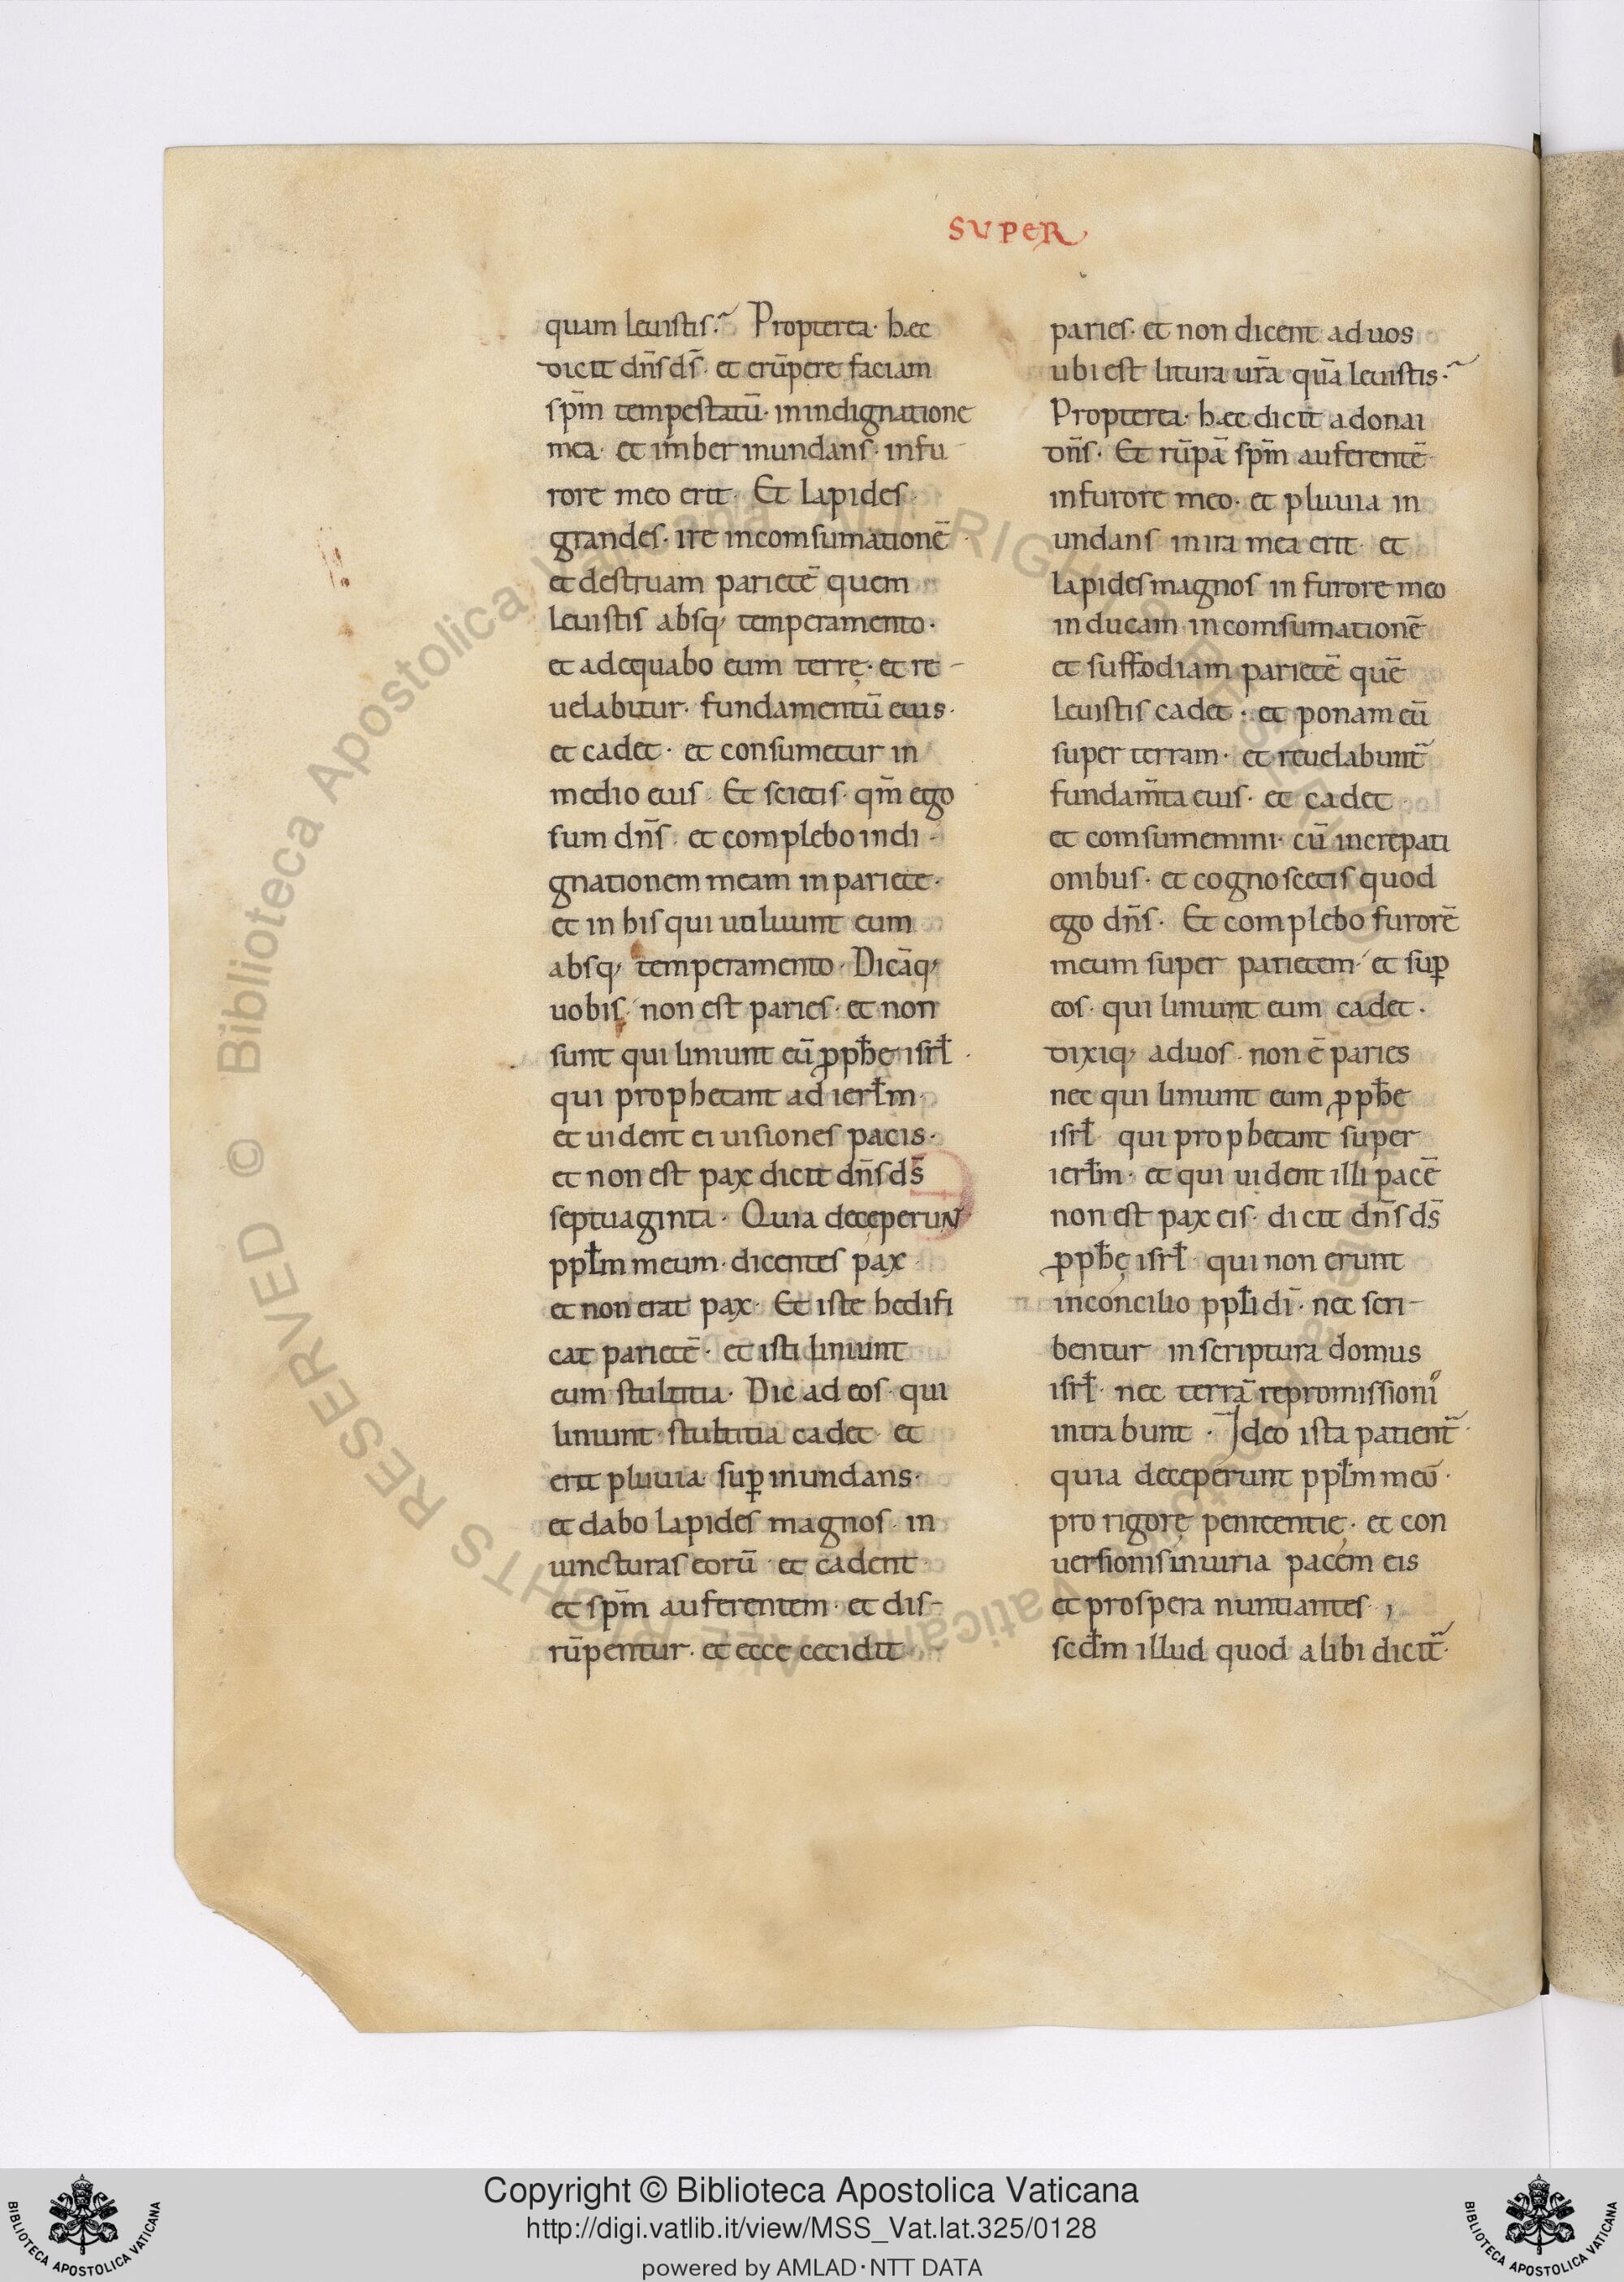 SUPER
quam leuistis. Propterea· hęc
dicit dn̄s ds̄· et erūpere faciam
spm̄ tempestatū· in indignatione
mea· et imber inundans· in fu
rore meo erit· Et lapides
grandes· ire in comsumationē
et destruam parietē quem
leuistis absq; temperamento·
et adequabo eum terrę· et re-
uelabitur· fundamentū eius·
et cadet· et consumetur in
medio eius· Et scietis· qm̄ ego
sum dn̄s· et complebo indi-
gnationem meam in pariete·
et in his qui utiliunt eum
absq; temperamento· Dicāq;
uobis· non est paries· et non
sunt qui liniunt eū ꝓph̄e isrł·
qui prophetant ad ierłm·
et uident ei uisiones pacis·
et non est pax dicit dn̄s ds̄
septuaginta· Quia decęperuN
ppłm meum· dicentes pax
et non erat pax· Et iste hedifi
cat parietē· et isti liniunt
eum stultitia· Dic ad eos· qui
liniunt stultitia cadet· et
erit pluuia suꝑ inundans·
et dabo lapides magnos· in
iuncturas eorū· et cadent·
et spm̄ auferentem· et dis-
rūpentur· et ecce cecidit
paries· et non dicent ad uos
ubi est litura ur̄a quā leuistis·
Propterea· hęc dicit adonai
dn̄s· Et rūpā spm̄ auferentē
in furore meo· et pluuia in
undans in ira mea erit· et
lapides magnos in furore meo
inducam in comsumationē
et suffodiam parietē quē
leuistis cadet· et ponam eū
super terram· et reuelabunt̄
fundam̄ta eius· et cadet
et comsumemini· cū increpati
onibus· et cognoscetis quod
ego dn̄s· Et complebo furorē
meum super parietem· et suꝑ
eos· qui liniunt eum cadet·
dixiq; ad uos· non ē paries
nec qui liniunt eum ꝓph̄e
isrł· qui prophetant super
ierłm· et qui uident illi pacē
non est pax eis· dicit dn̄s ds̄
ꝓph̄ę isrł· qui non erunt
in concilio ppłi dī· nec scri-
bentur in scriptura domus
isrł· nec terrā repromissioni
intrabunt· Ideo ista patient̄
quia deceperunt ppłm meū·
pro rigorę penitentię· et con
uersionis iniuria pacem eis
et prospera nuntiantes,
scd̄m illud quod alibi dicit̄·
Copyright © Biblioteca Apostolica Vaticana
http://digi.vatlib.it/view/MSS_Vat.lat.325/0128
powered by AMLAD·NTT DATA
BIBLIOTECA APOSTOLICA VATICANA
BIBLIOTECA APOSTOLICA VATICANA
© Biblioteca Apostolica Vaticana ALL RIGHTS RESERVED